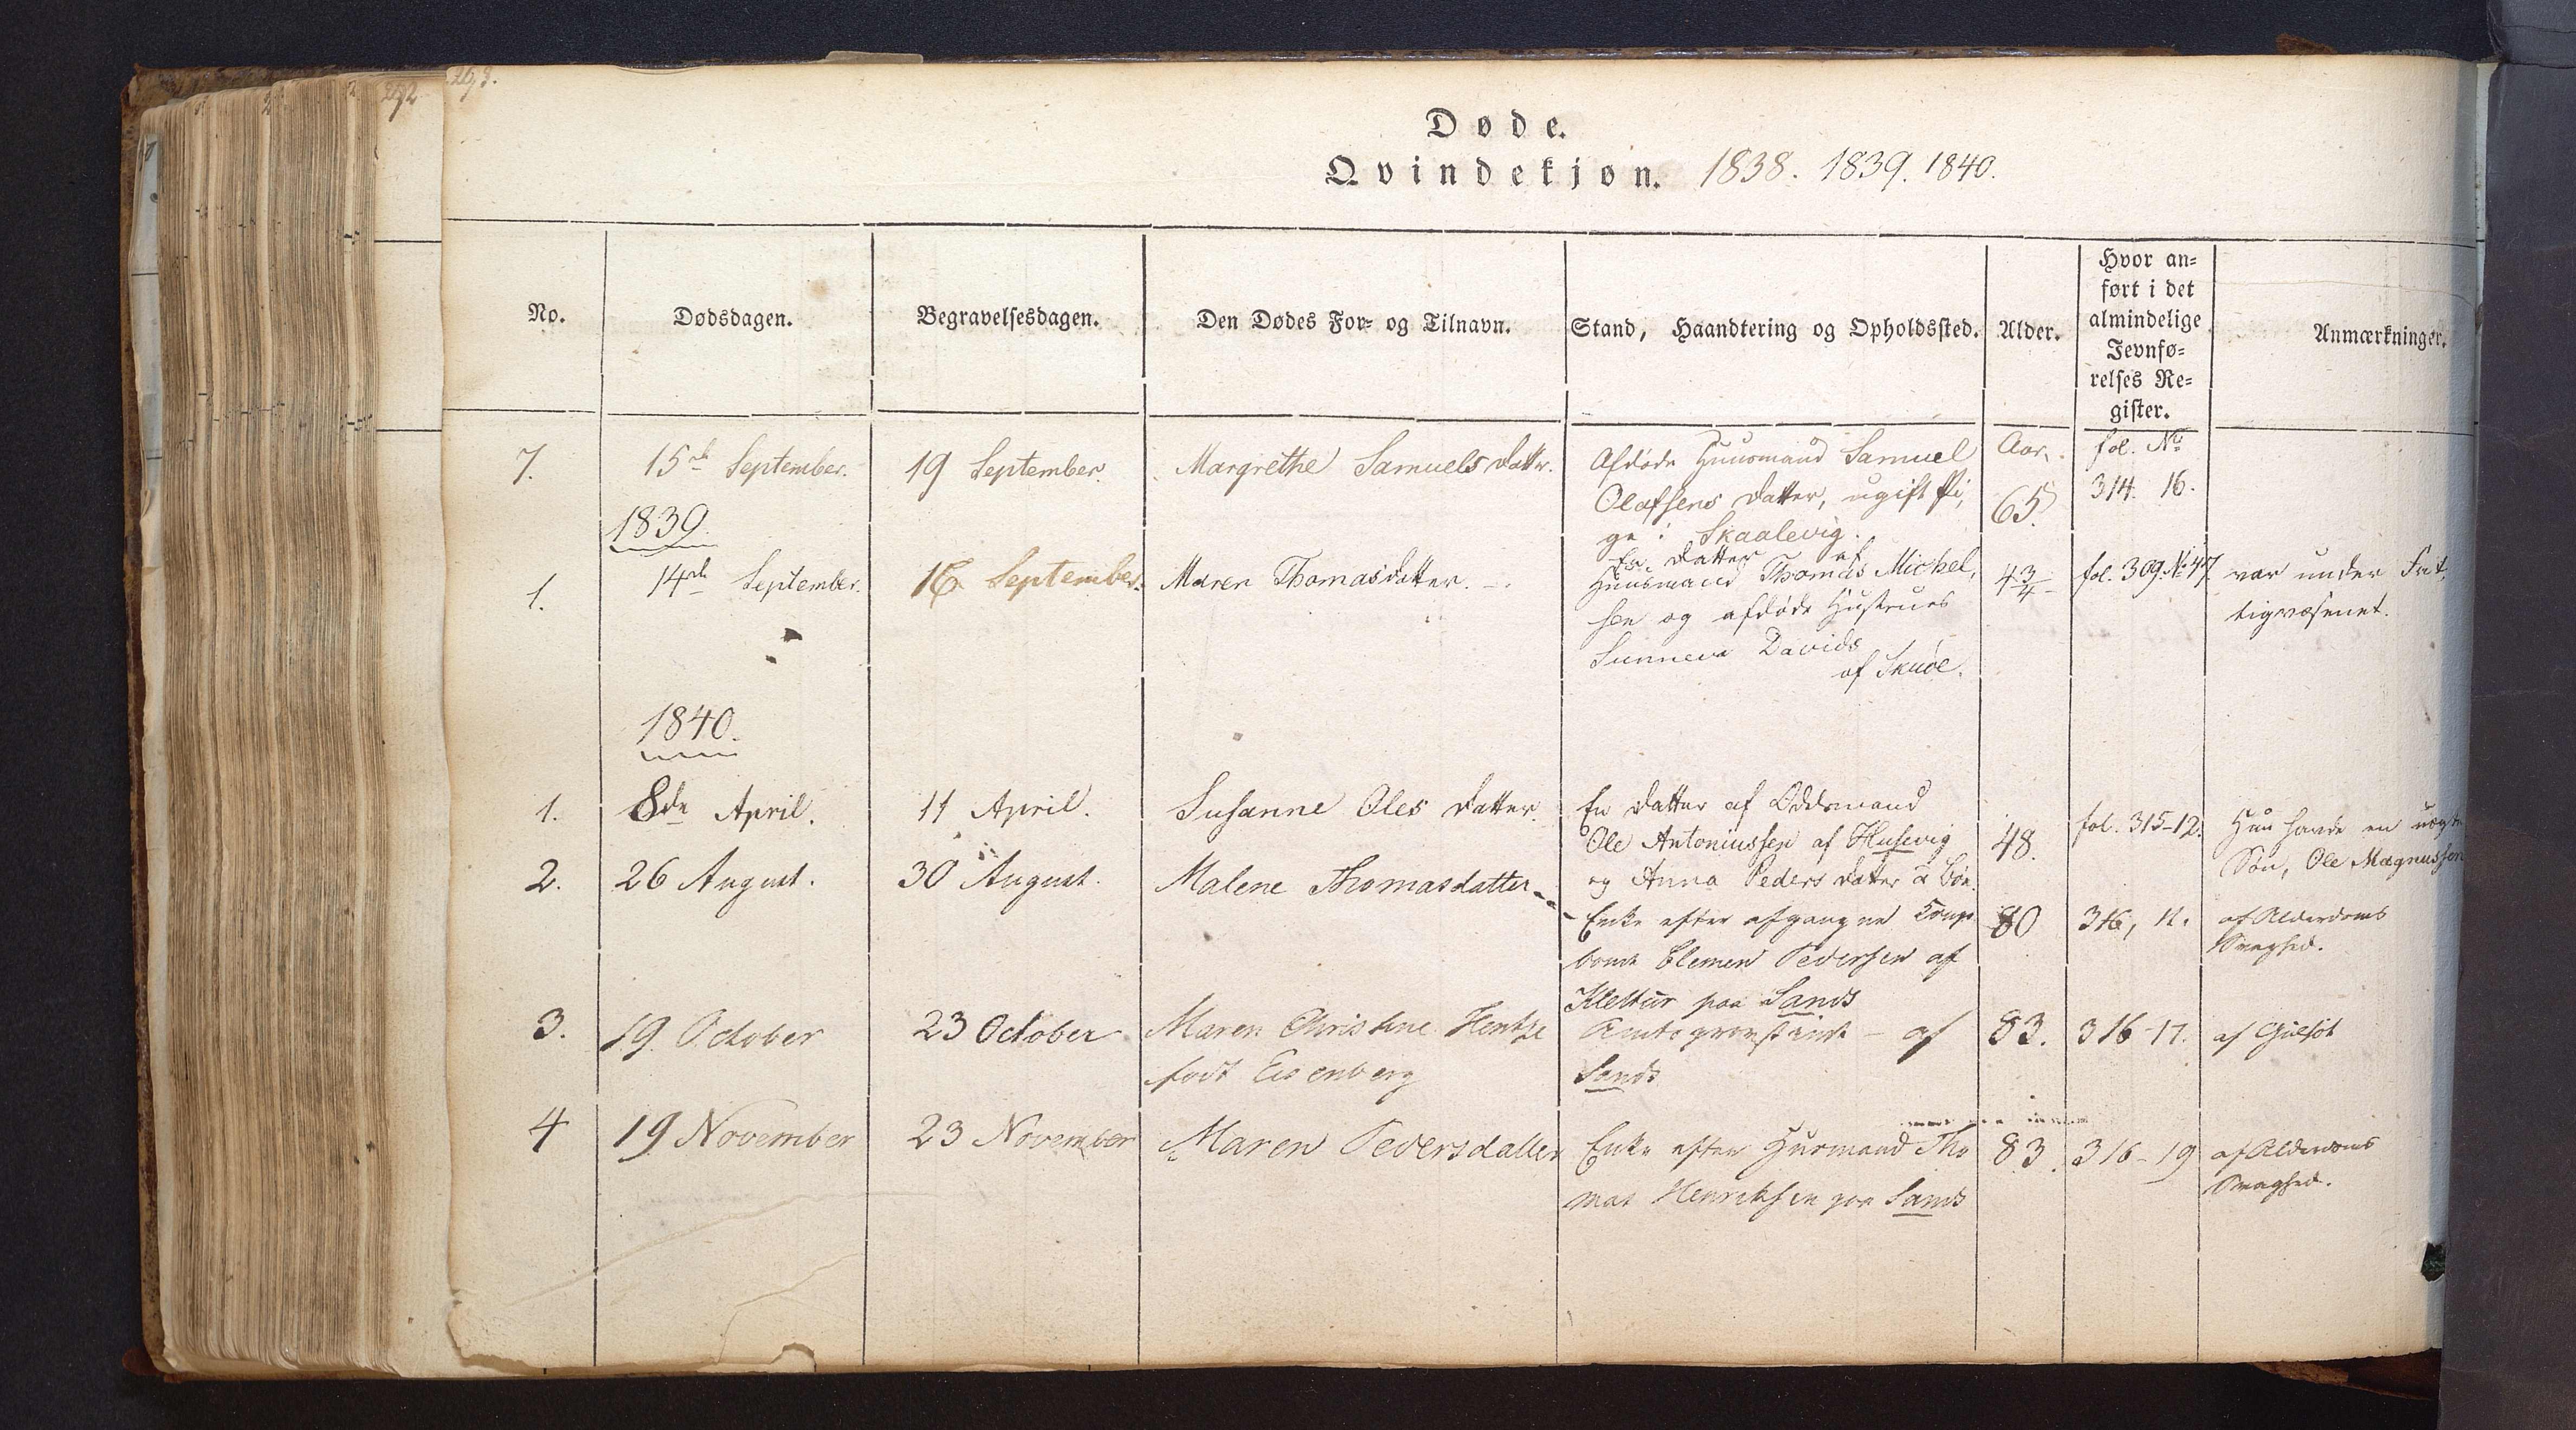 292
293.
Døde.
Qvindekjøn. 1838. 1839. 1840.
No.
Dødsdagen.
Begravelsesdagen.
Den Dødes For- og Tilnavn.
Stand, Haandtering og Opholdssted.
Alder.
Hvor an-
ført i det
almindelige
Jevnfø-
relses Re-
gister.
Anmærkninger.
7. 15de September. 19 September. Margrethe Samuels datter.
Afdøde Huusmand Samuel
Olafsens datter, ugift Pi,
ge i Skaalevig.
Aar.
65.
fol. No
314. 16.
1839.
1. 14de September. 16 September. Maren Thomasdatter.
En datter af
Huusmand Thomas Michel,
sen og afdøde Hustrues
Sunneva Davids
af Skuøe.
4 3/4
fol. 309. No 47
var under Fat,
tigvæsenet.
1840.
1. 8de April. 11 April. Susanne Oles datter.
En datter af Oddsmand
Ole Antoniussen af Husevig
og Anna Peders datter a Bøe.
48.
fol. 315-12.
Hun havde en uægte
Søn, Ole Magnussen
2. 26 August. 30 August. Malene Thomasdatter
Enke efter afgangne Konge
bonde Clemen Pedersen af
Klettur paa Sands
80
316, 11.
af Alderdoms
Svaghed.
3. 19. October 23 October Maren Christine Hentze
født Eisenberg
af
Sands
83.
316-17.
af
4 19 November 23 November Maren Pedersdatter
Enke efter Husmand Tho
mas Henriksen paa Sands
83.
316-19
af Alderdoms
Svaghed.